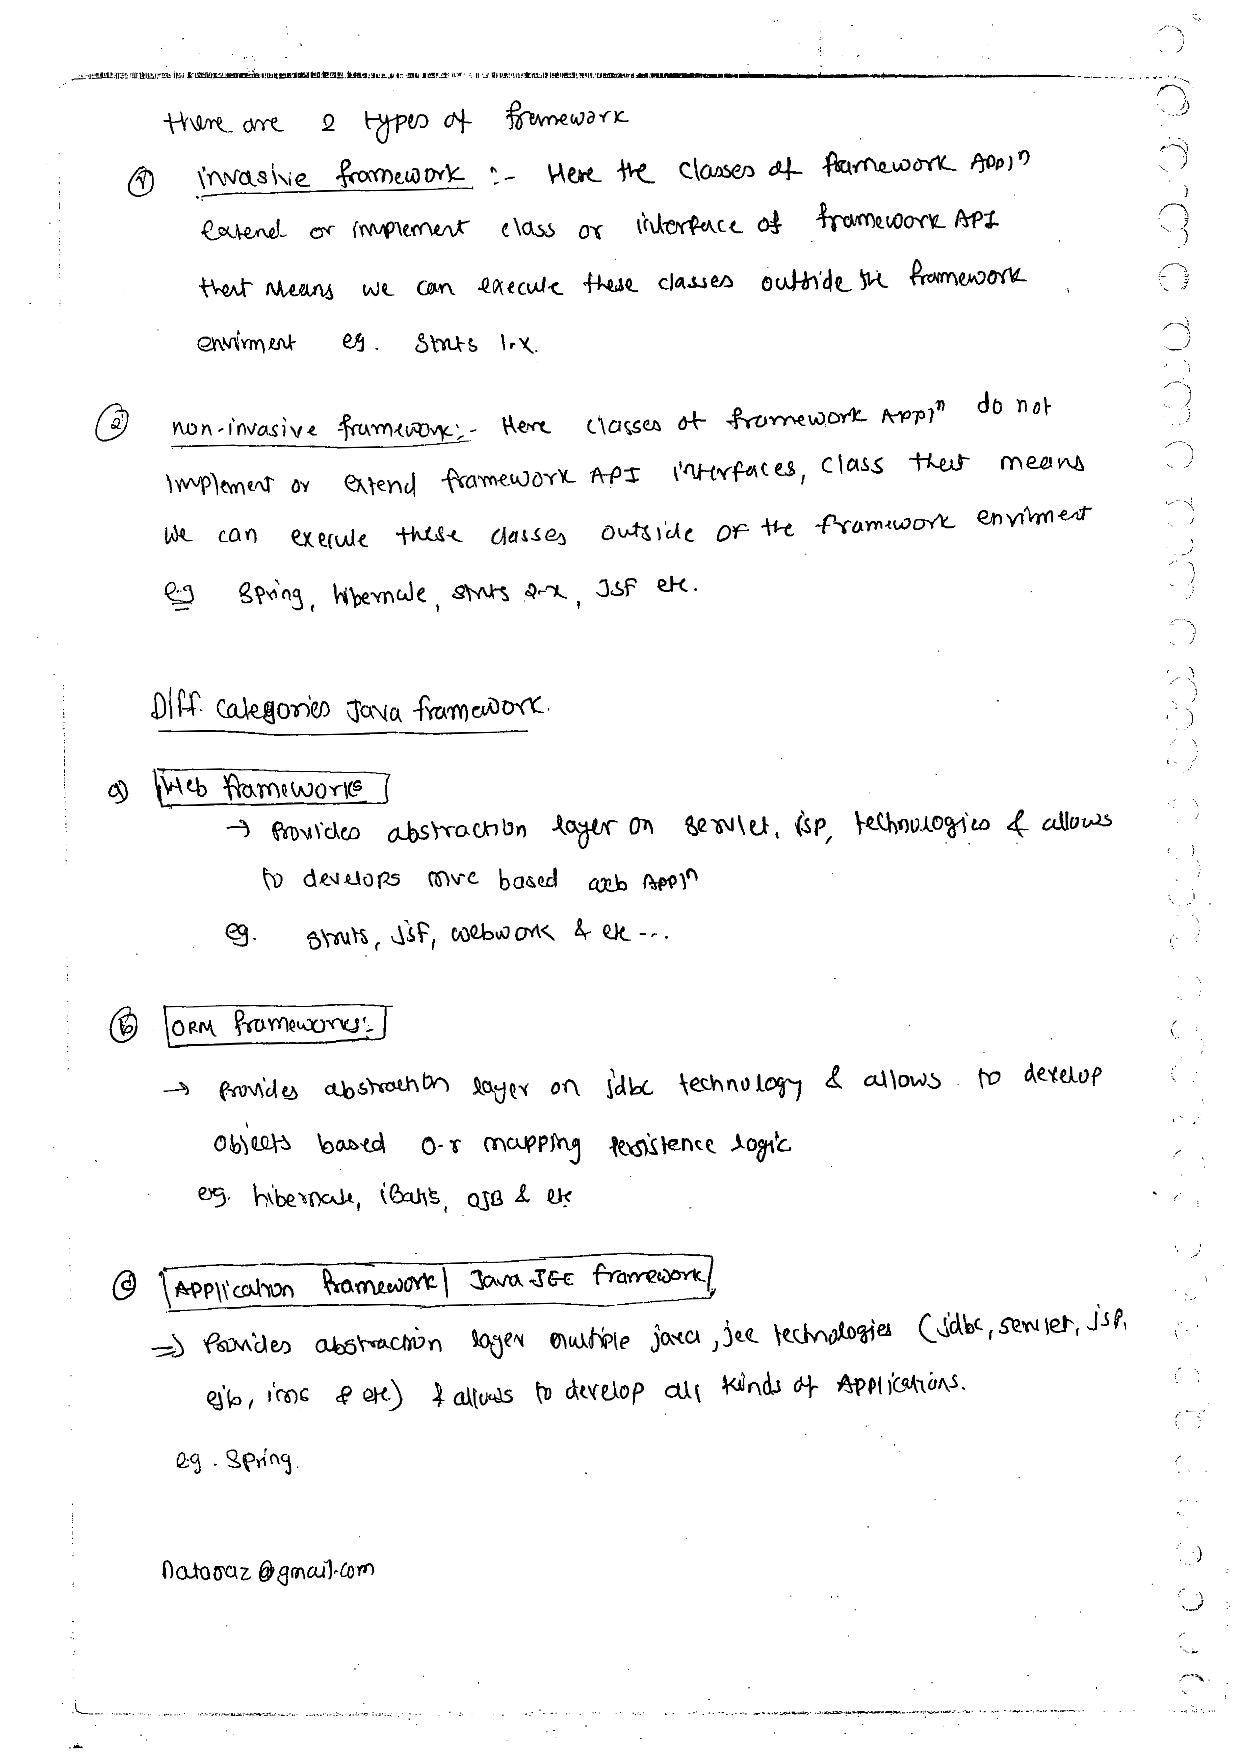 there are 2 types of framework
① invasive framework :- Here the classes of framework Appln
extend or implement class or interface of framework API
that means we can execute these classes outside the framework
envirment eg. struts 1.x
② non-invasive framework:- Here classes of framework Appln do not
implement or extend framework API interfaces, class that means
we can execute these classes outside of the framework envirment
e.g Spring, hibernate, struts 2-x, JSF etc.
Diff. Categories Java framework.
a) Web frameworks
→ Provides abstraction layer on servlet, jsp, technologies & allows
to develops mvc based web Appln
eg. struts, JSF, webwork & etc ---.
ⓑ ORM frameworks:-
→ Provides abstraction layer on jdbc technology & allows to develop
Objects based o-r mapping persistence logic
eg. hibernate, iBatis, OJB & etc
ⓒ Application framework | Java-JEE framework
⇒ Provides abstraction layer multiple java, jee technologies (jdbc, servlet, jsp,
ejb, jms & etc) & allows to develop all kinds of Applications.
e.g. Spring.
Nataraz@gmail.com